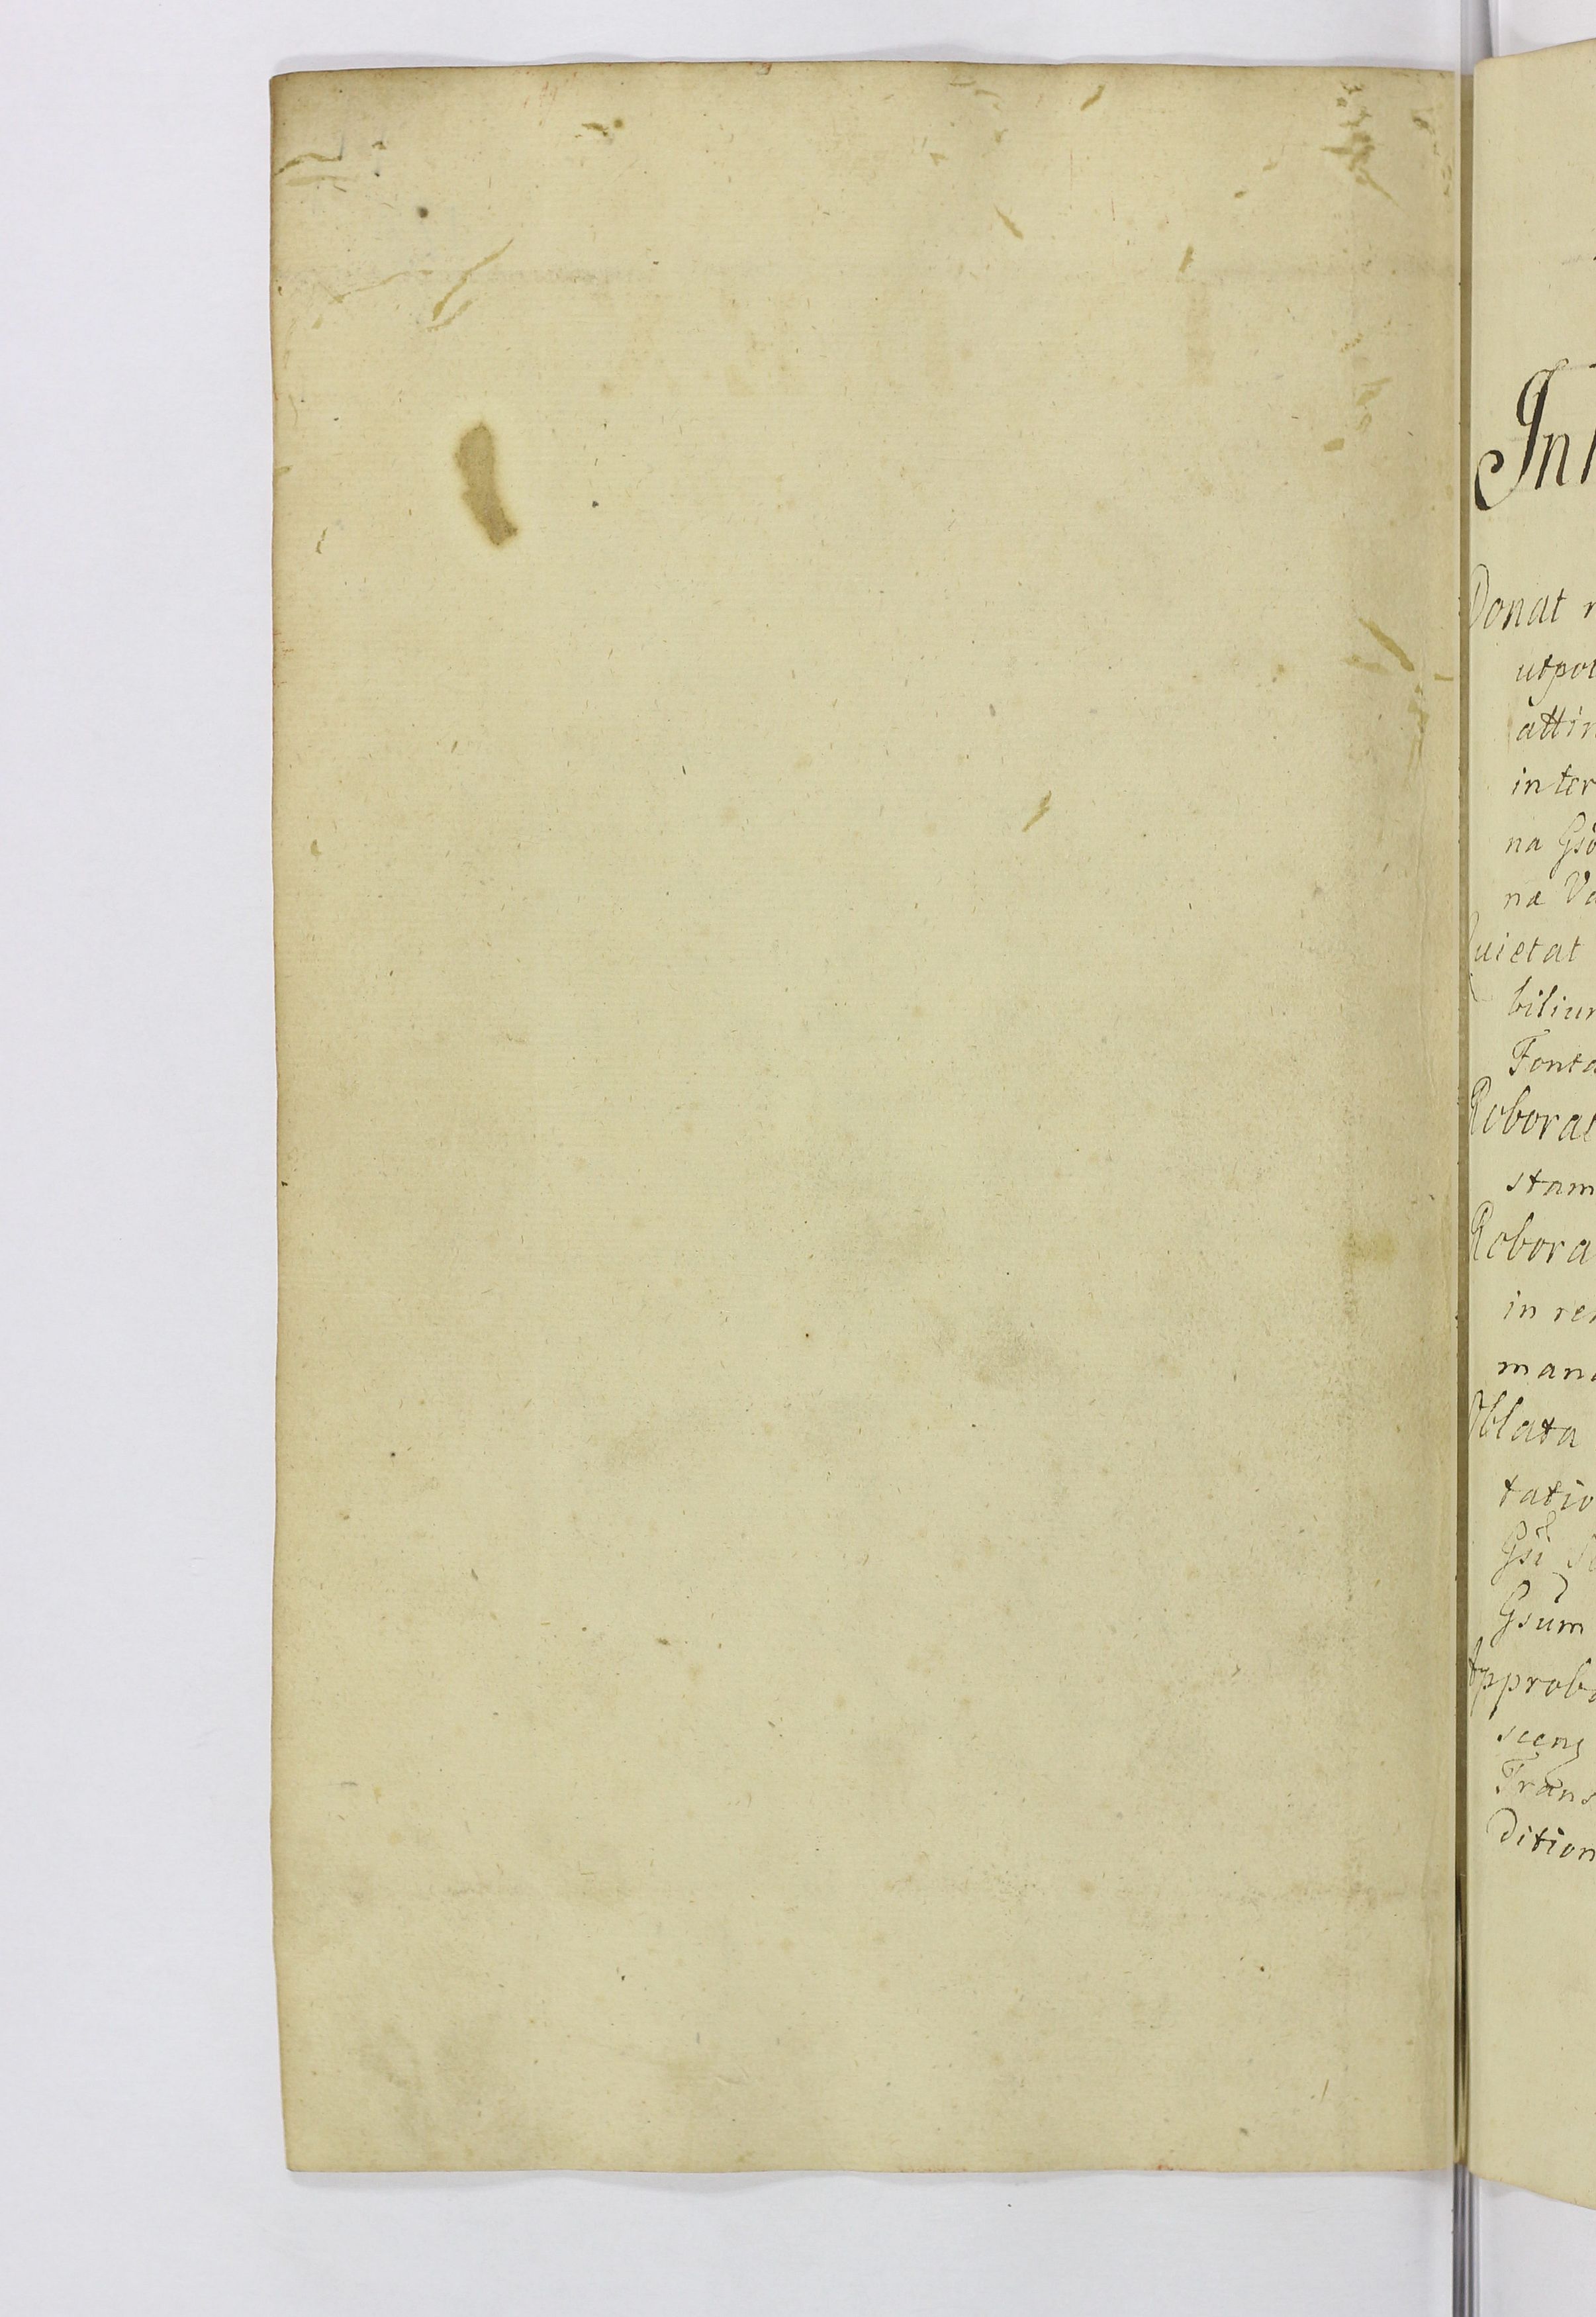 In
Donat
utpo
attin
inter
na Gso
na Va
Quietat
biliu
Fonta
Roborat
stam
Robora
in re
man
Oblata
tatio
Gsi
Gsum
Approba
scens
Trans
dition